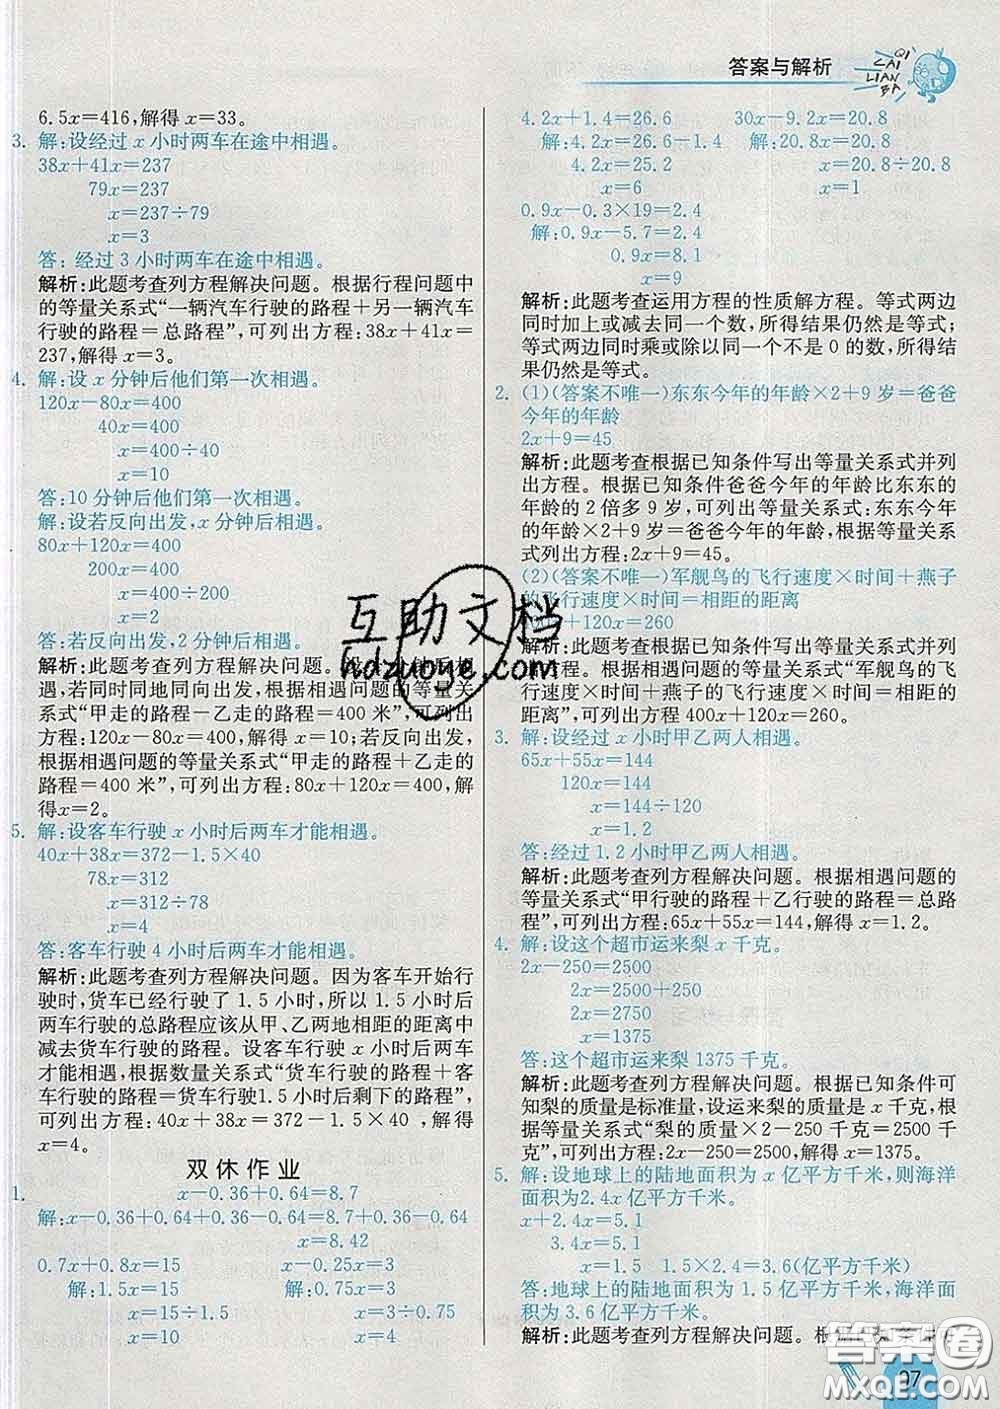 答案与解析
QI
CAI
LIAN
BA
6.5x=416,解得 x=33。
3. 解:设经过 x 小时两车在途中相遇。
38x+41x=237
79x=237
x=237÷79
x=3
答: 经过 3 小时两车在途中相遇。
解析:此题考查列方程解决问题。根据行程问题中
的等量关系式“一辆汽车行驶的路程+另一辆汽车
行驶的路程=总路程”,可列出方程:38x+41x=
237,解得 x=3。
4. 解:设 x 分钟后他们第一次相遇。
120x-80x=400
40x=400
x=400÷40
x=10
答:10 分钟后他们第一次相遇。
解:设若反向出发,x 分钟后相遇。
80x+120x=400
200x=400
x=400÷200
x=2
答:若反向出发,2 分钟后相遇。
解析:此题考查列方程解决问题。
遇,若同时同地同向出发,根据相遇问题的等量关
系式“甲走的路程-乙走的路程=400 米”,可列出
方程:120x-80x=400,解得 x=10;若反向出发,
根据相遇问题的等量关系式“甲走的路程+乙走的
路程=400 米”,可列出方程:80x+120x=400,解
得 x=2。
5. 解:设客车行驶 x 小时后两车才能相遇。
40x+38x=372-1.5×40
78x=312
x=312÷78
x=4
答:客车行驶 4 小时后两车才能相遇。
解析:此题考查列方程解决问题。因为客车开始行
驶时,货车已经行驶了 1.5 小时,所以 1.5 小时后
两车行驶的总路程应该从甲、乙两地相距的距离中
减去货车行驶的路程。设客车行驶 x 小时后两车
才能相遇,根据数量关系式“货车行驶的路程+客
车行驶的路程=货车行驶1.5小时后剩下的路程”,
可列出方程:40x+38x=372-1.5×40,解得
x=4。
双休作业
1. x-0.36+0.64=8.7
解:x-0.36+0.64+0.36-0.64=8.7+0.36-0.64
x=8.42
0.7x+0.8x=15 x-0.25x=3
解:1.5x=15 解:0.75x=3
x=15÷1.5 x=3÷0.75
x=10 x=4
4.2x+1.4=26.6 30x-9.2x=20.8
解:4.2x=26.6-1.4 解:20.8x=20.8
4.2x=25.2 x=20.8÷20.8
x=6 x=1
0.9x-0.3×19=2.4
解:0.9x-5.7=2.4
0.9x=8.1
x=9
解析:此题考查运用方程的性质解方程。等式两边
同时加上或减去同一个数,所得结果仍然是等式;
等式两边同时乘或除以同一个不是 0 的数,所得结
果仍然是等式。
2. (1)(答案不唯一)东东今年的年龄×2+9 岁=爸爸
今年的年龄
2x+9=45
解析:此题考查根据已知条件写出等量关系式并列
出方程。根据条件爸爸今年的年龄比东东今年
的年龄的 2 倍多 9 岁,可得出等量关系式:东东今
年的年龄×2+9 岁=爸爸今年的年龄,根据等量关
系式列出方程:2x+9=45。
(2)(答案不唯一)军舰鸟的飞行速度×时间+燕子
的飞行速度×时间=相距的距离
x+120x=260
解析:此题考查根据已知条件写出等量关系式并列
方程。根据相遇问题的等量关系式“军舰鸟的飞
行速度×时间+燕子的飞行速度×时间=相距的
距离”,可列出方程 400x+120x=260。
3. 解:设经过 x 小时甲乙两人相遇。
65x+55x=144
120x=144
x=144÷120
x=1.2
答:经过 1.2 小时甲乙两人相遇。
解析:此题考查列方程解决问题。根据相遇问题的
等量关系式“甲行驶的路程+乙行驶的路程=总路
程”,可列出方程:65x+55x=144,解得 x=1.2。
4. 解:设这个超市运来梨 x 千克。
2x-250=2500
2x=2500+250
2x=2750
x=1375
答:这个超市运来梨 1375 千克。
解析:此题考查列方程解决问题。根据已知条件可
知梨的质量是标准量,设运来梨的质量是 x 千克,
根据等量关系式“梨的质量×2-250 千克=2500
千克”,可列出方程:2x-250=2500,解得 x=1375。
5. 解:设地球上的陆地面积为 x 亿平方千米,则海洋
面积为2.4x亿平方千米。
x+2.4x=5.1
3.4x=5.1
x=1.5 1.5×2.4=3.6(亿平方千米)
答:地球上的陆地面积为 1.5 亿平方千米,海洋
面积为 3.6 亿平方千米。
解析:此题考查列方程解决问题。根据
97
互助文档
hdzuoye.com
答案圈
MXQE.COM